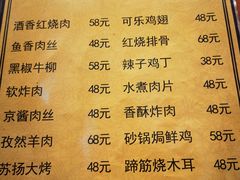 酒香红烧肉 58元 可乐鸡翅 48元
鱼香肉丝 48元 红烧排骨 68元
黑椒牛柳 58元 辣子鸡丁 38元
软炸肉 48元 水煮肉片 48元
京酱肉丝 48元 香酥炸肉 48元
孜然羊肉 68元 砂锅焗鲜鸡 58元
苏扬大烤 48元 蹄筋烧木耳 48元